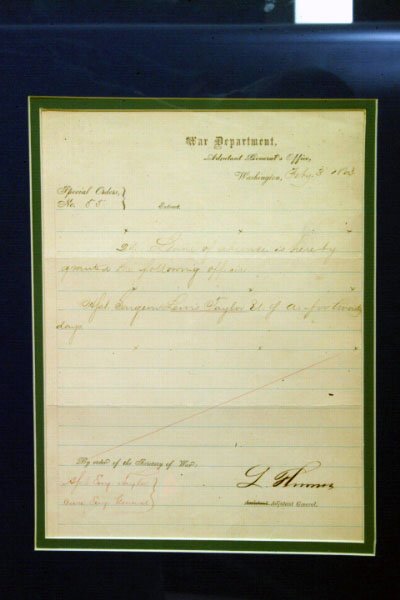 War Department,
Adjutant General's Office,
Washington, Feby 3 1863
Special Orders,
No. 55
Extract.
Leave of absence is hereby
granted the following officer
Asst Surgeon Lewis Taylor U.S.A. for twenty
days
By order of the Secretary of War:
Asst Surg Taylor
Surg General
L Thomas
Assistant Adjutant General.